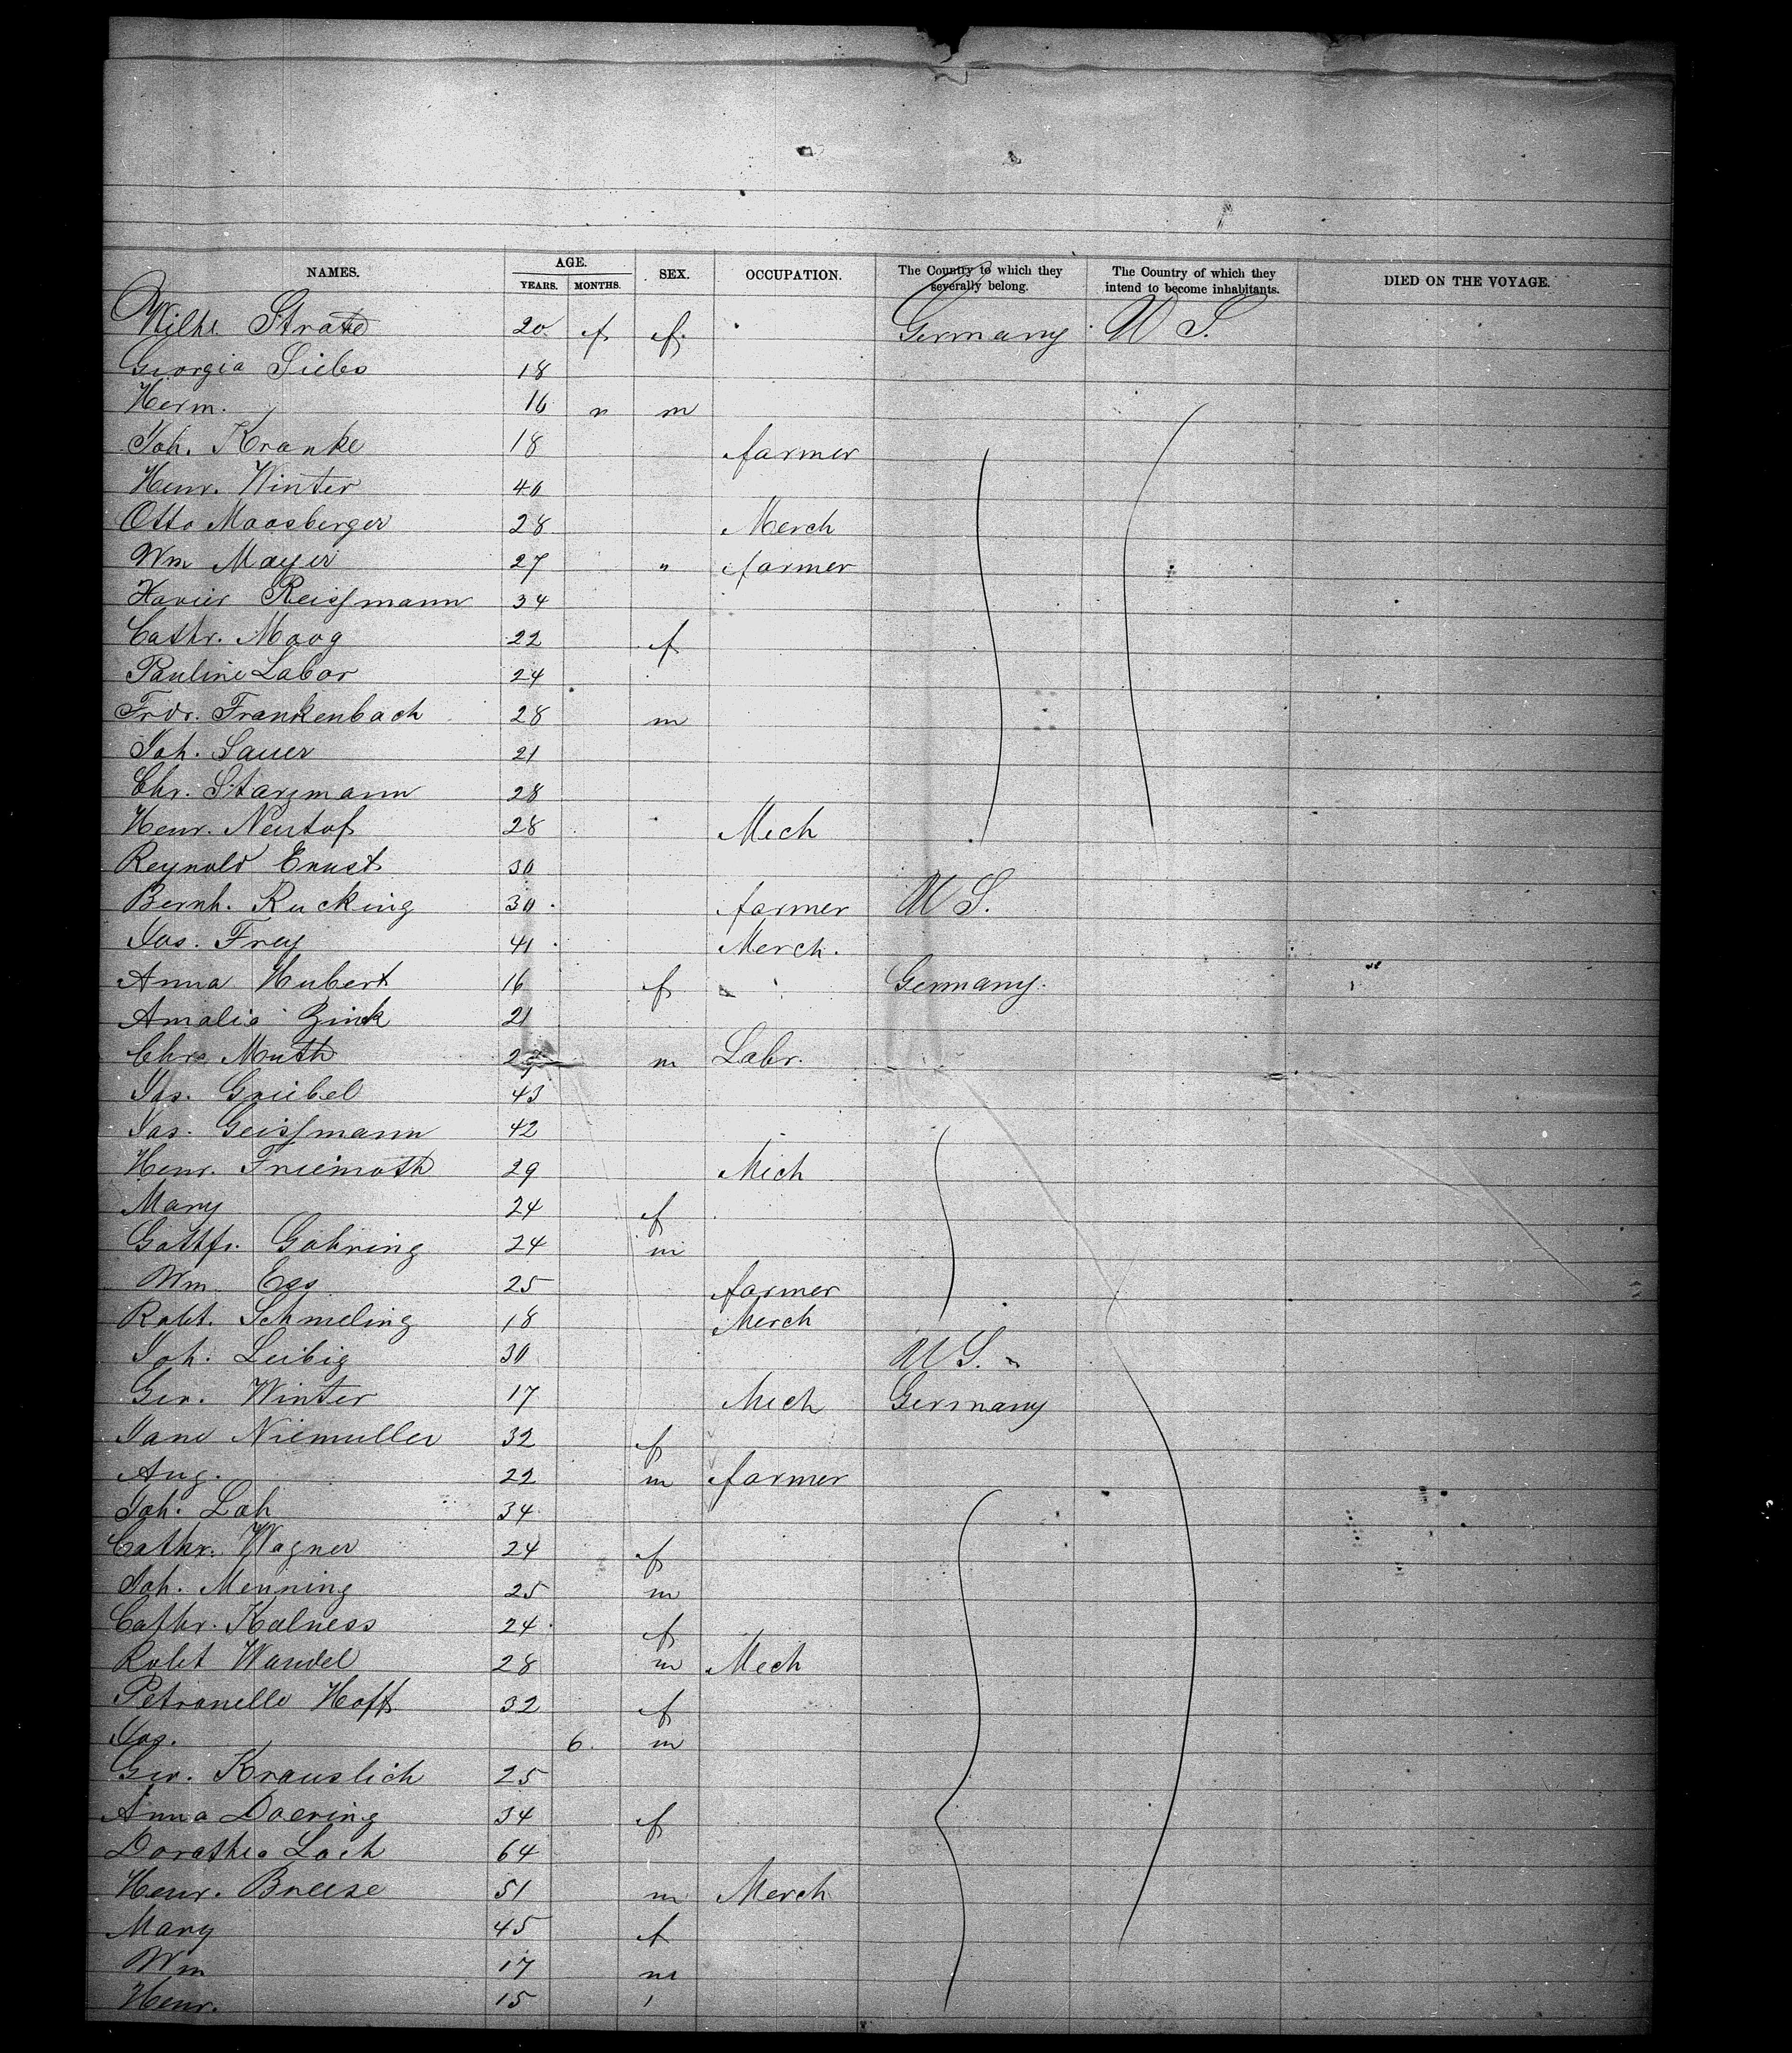 NAMES. AGE. YEARS. MONTHS. SEX. OCCUPATION. The Country to which they severally belong. The Country of which they intend to become inhabitants. DIED ON THE VOYAGE.
Wilhe Strate 20 f f. Germany U S.
Georgia Siebs 18
Herm. 16 m
Joh. Kranke 18 farmer
Henr. Winter 40
Otto Moosberger 28 Merch
Wm Mayer 27 " farmer
Xavier Reissmann 34
Cathr. Moog 22 f
Pauline Labor 24
Frdr. Frankenbach 28 m
Joh. Sauer 21
Chr. 28
Henr. 28 Mech
Reynold Ernst 30
Bernh. Rucking 30 farmer U S.
Jos. Frey 41 Merch.
Anna Hubert 16 f Germany.
Amalia Zink 21
Chr. Muth m Labr.
Jos. Griebel 43
Jos. Geissmann 42
Henr. Friemoth 29 Mech
Mary 24 f
Gottfr. Gohring 24 m
Wm 25 farmer
Robt. Schmeling 18 Merch
Joh. Leibig 30 U S.
Geo. Winter 17 Mech Germany
Jane Niemuller 32 f
Aug. 22 m farmer
Joh. Loh 34
Cathr. Wagner 24 f
Joh. Menning 25 m
Cathr. Kalness 24 f
Robt Wandel 28 m Mech
Petronelle Hoff 32 f
Jos. 6. m
Geo. Krauslich 25
Anna Doering 34 f
Dorothea Loch 64
Henr. Breese 51 m Merch
Mary 45 f
Wm 17 m
Henr. 15